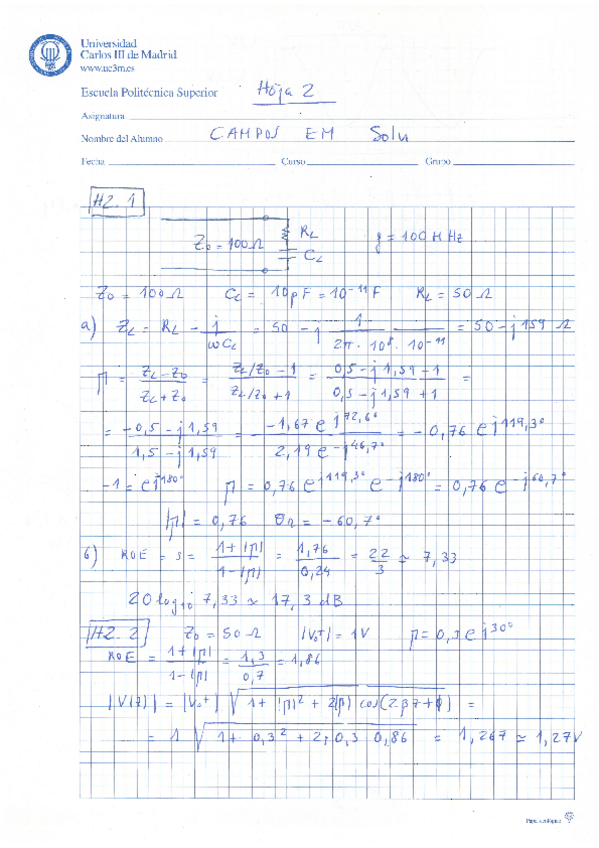 Universidad
Carlos III de Madrid
www.uc3m.es
Escuela Politécnica Superior Hoja 2
Asignatura
Nombre del Alumno CAMPOS EM Solu
Fecha Curso Grupo
H2. 1
Z₀ = 100Ω R_L C_L f = 100 MHz
Z₀ = 100 Ω C_L = 10pF = 10⁻¹¹F R_L = 50 Ω
a) Z_L = R_L - j/(ωC_L) = 50 - j 1/(2π · 10⁸ · 10⁻¹¹) = 50 - j 159 Ω
Γ = (Z_L - Z₀)/(Z_L + Z₀) = (Z_L/Z₀ - 1)/(Z_L/Z₀ + 1) = (0,5 - j1,59 - 1)/(0,5 - j1,59 + 1) =
= (-0,5 - j1,59)/(1,5 - j1,59) = (-1,67 e^{j72,6°})/(2,19 e^{-j46,7°}) = -0,76 e^{j119,3°}
-1 = e^{j180°} Γ = 0,76 e^{j119,3°} e^{-j180°} = 0,76 e^{-j60,7°}
|Γ| = 0,76 θ_Γ = -60,7°
b) ROE = s = (1+|Γ|)/(1-|Γ|) = 1,76/0,24 = 22/3 ≃ 7,33
20 log₁₀ 7,33 ≃ 17,3 dB
H2. 2 Z₀ = 50 Ω |V₀⁺| = 1V Γ = 0,3 e^{j30°}
ROE = (1+|Γ|)/(1-|Γ|) = 1,3/0,7 = 1,86
|V(z)| = |V₀⁺| √(1 + |Γ|² + 2|Γ| cos(2βz+ϕ)) =
= 1 √(1 + 0,3² + 2·0,3 0,86) = 1,267 ≃ 1,27V